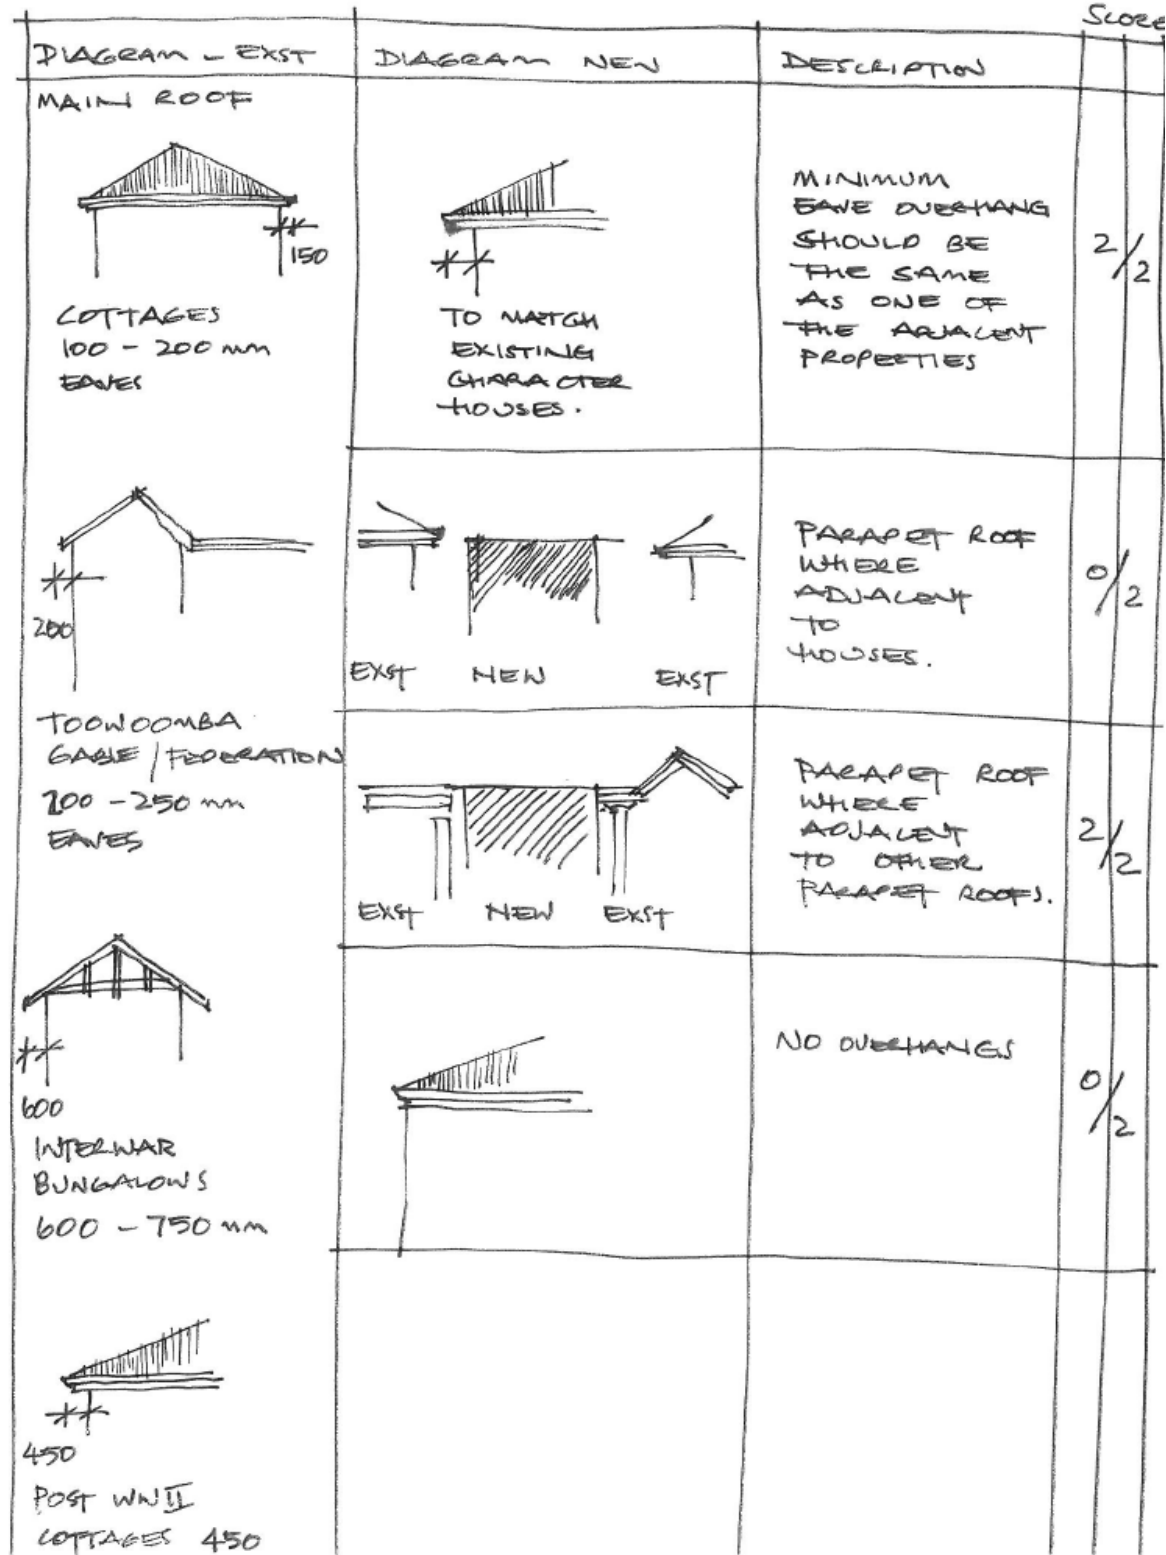 SCORE
DIAGRAM - EXST
DIAGRAM NEW
DESCRIPTION
MAIN ROOF
150
COTTAGES
100 - 200 mm
EAVES
TO MATCH
EXISTING
CHARACTER
HOUSES.
MINIMUM
EAVE OVERHANG
SHOULD BE
THE SAME
AS ONE OF
THE ADJACENT
PROPERTIES
2/2
200
TOOWOOMBA
GABLE / FEDERATION
200 - 250 mm
EAVES
EXST
NEW
EXST
PARAPET ROOF
WHERE
ADJACENT
TO
HOUSES.
0/2
EXST
NEW
EXST
PARAPET ROOF
WHERE
ADJACENT
TO OTHER
PARAPET ROOFS.
2/2
600
INTERWAR
BUNGALOWS
600 - 750 mm
NO OVERHANGS
0/2
450
POST WWII
COTTAGES 450